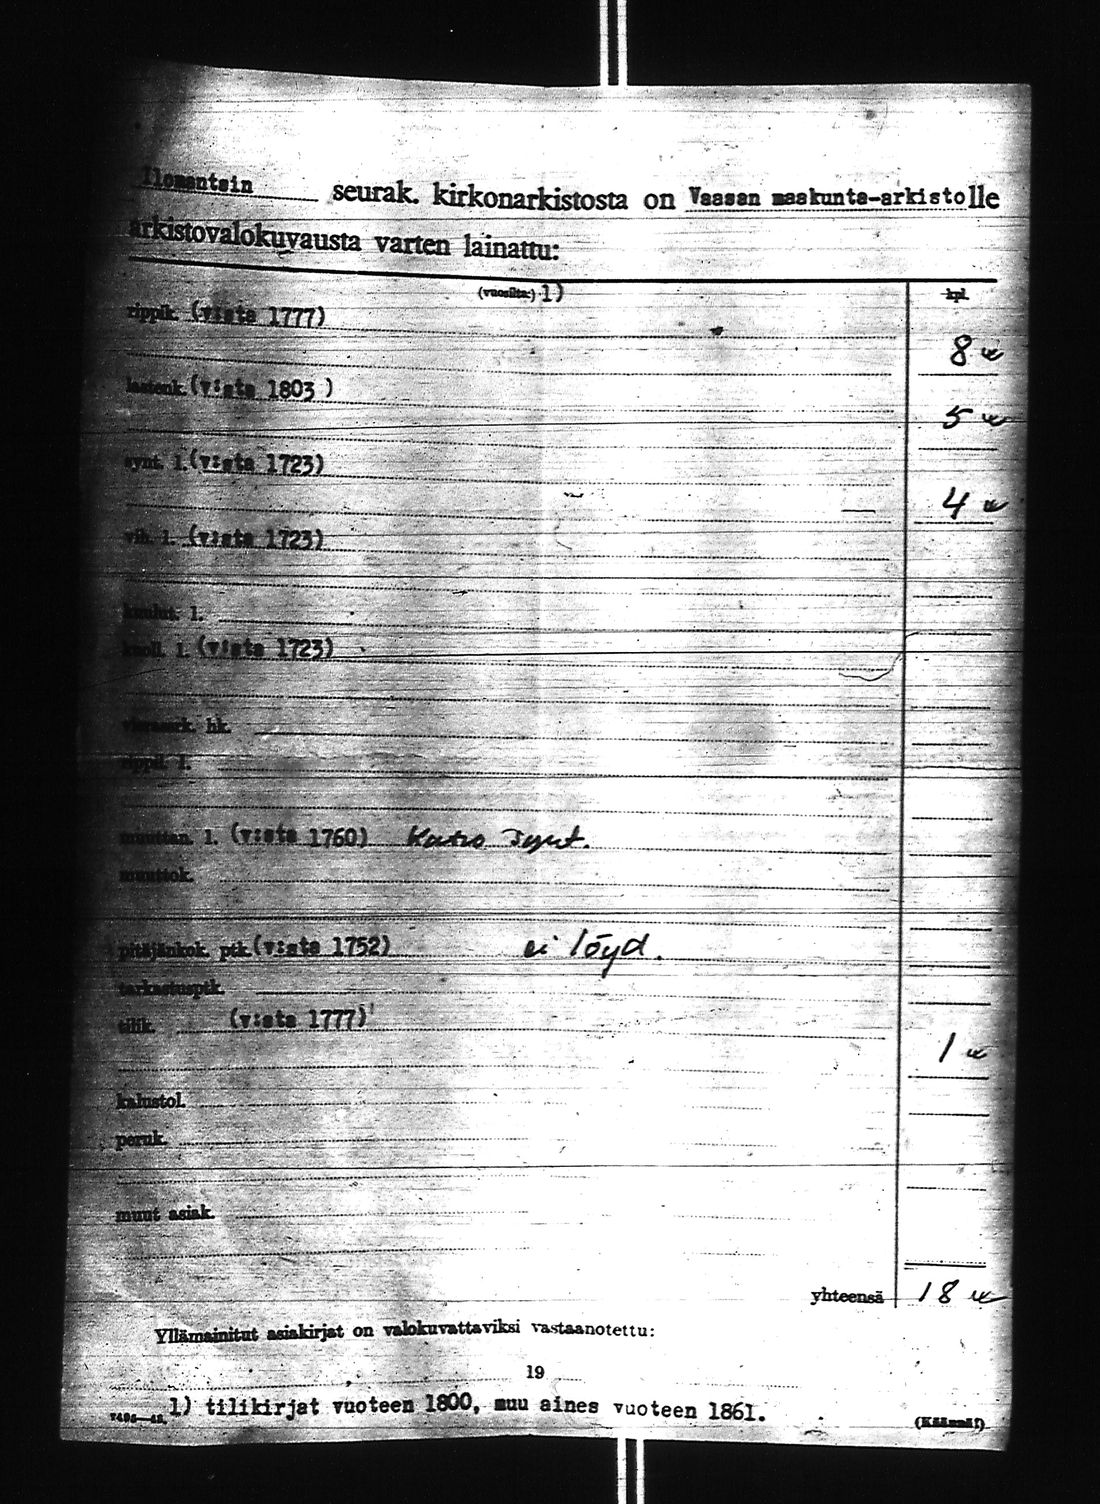 Ilomantsin seurak. kirkonarkistosta on Vaasan maakunta-arkistolle
arkistovalokuvausta varten lainattu:
(vuosilta:) 1) kpl.
rippik. (v:sta 1777)
8
lastenk. (v:sta 1803 )
5
synt. l. (v:sta 1723)
4
vih. l. (v:sta 1723)
kuulut. l.
kuoll. l. (v:sta 1723)
vierasrk. hk.
rippil. l.
muuttan. l. (v:sta 1760) Katso synt.
muuttok.
pitäjänkok. ptk. (v:sta 1752) ei löyd.
tarkastusptk.
tilik. (v:sta 1777)
1
kalustol.
peruk.
muut asiak.
yhteensä 18
Yllämainitut asiakirjat on valokuvattaviksi vastaanotettu:
19
1) tilikirjat vuoteen 1800, muu aines vuoteen 1861.
(Käännä!)